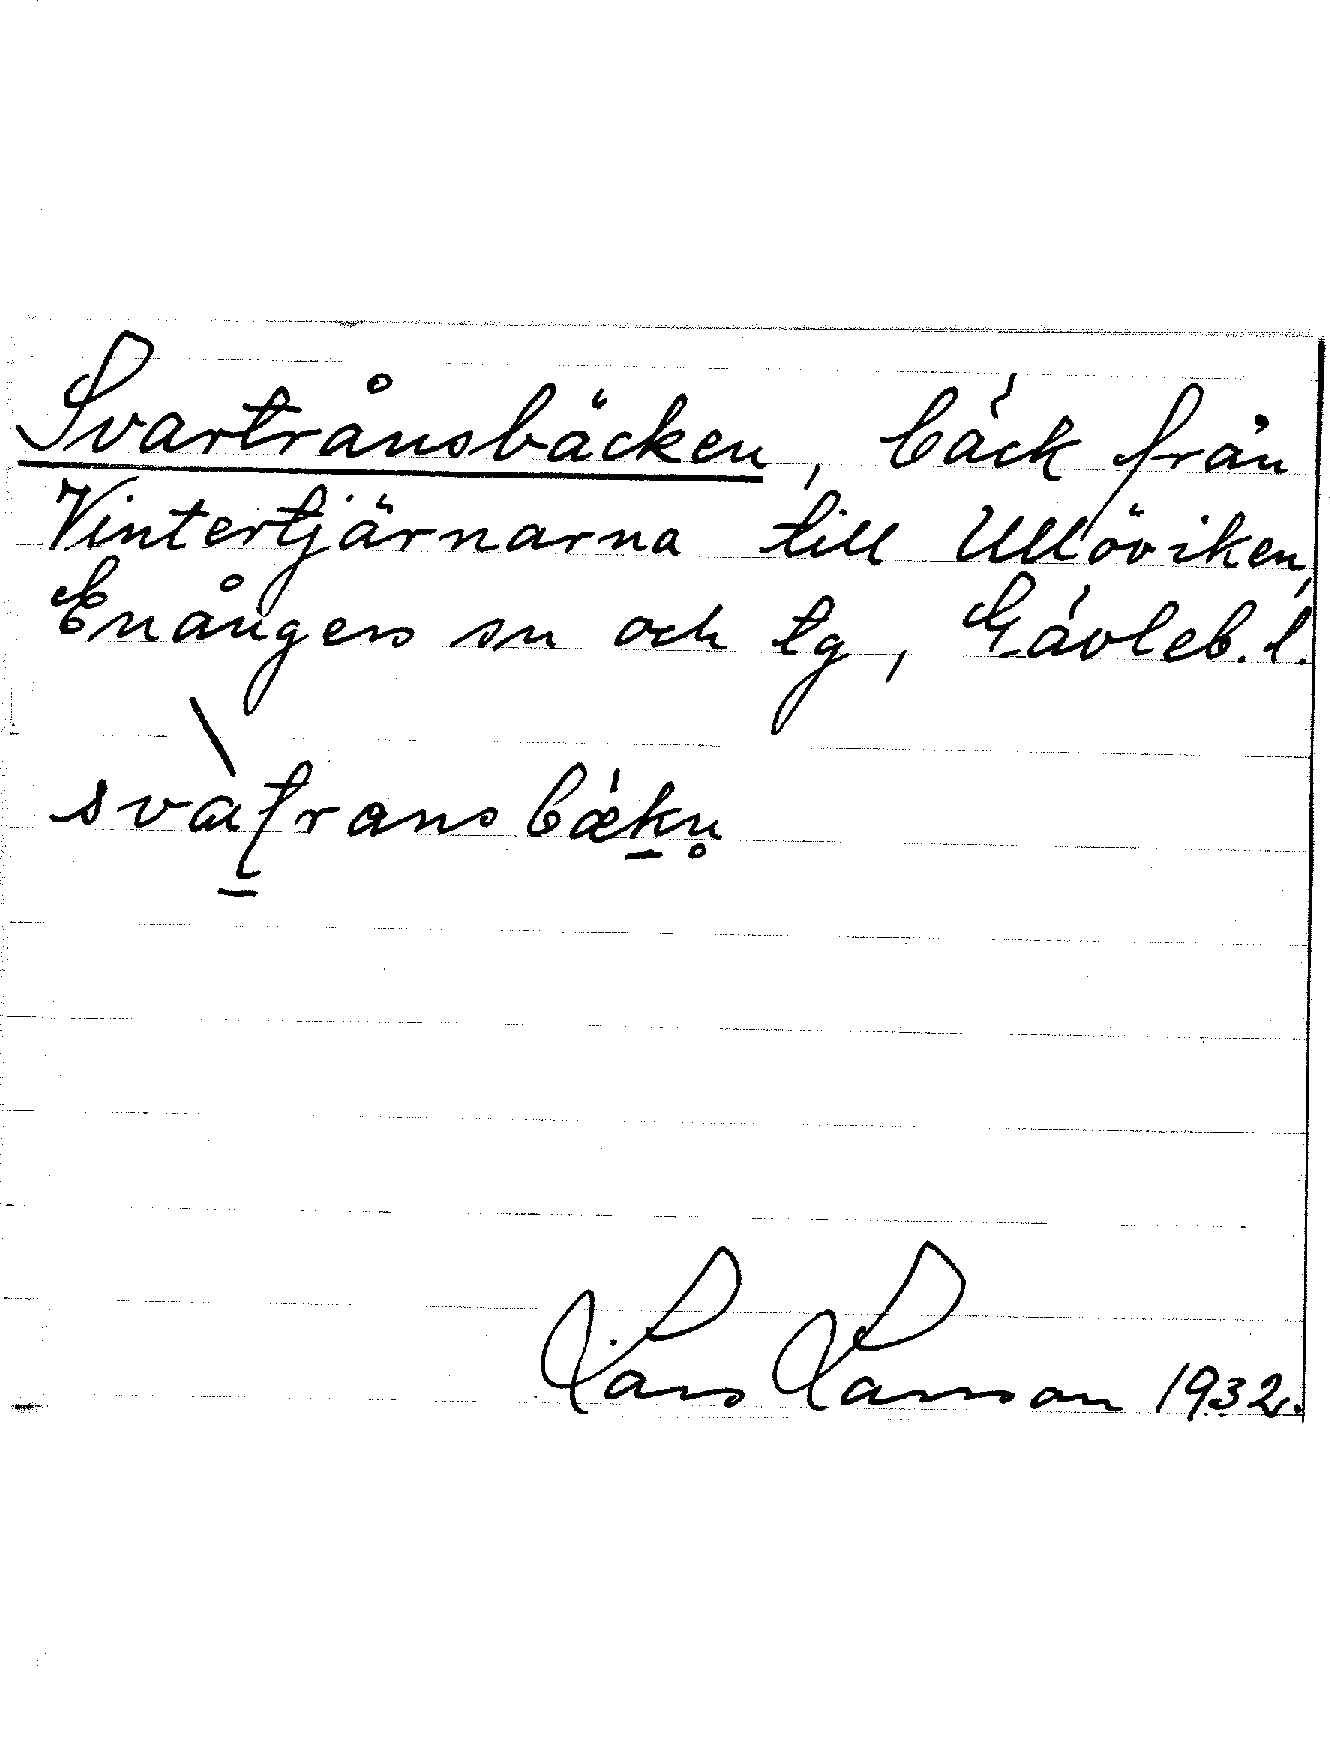 Svartrånsbäcken, bäck från
Vintertjärnarna till Ullöviken,
Enångers sn och tg, Gävleb. l.
svatransbækn̥
Lars Larsson 1932.